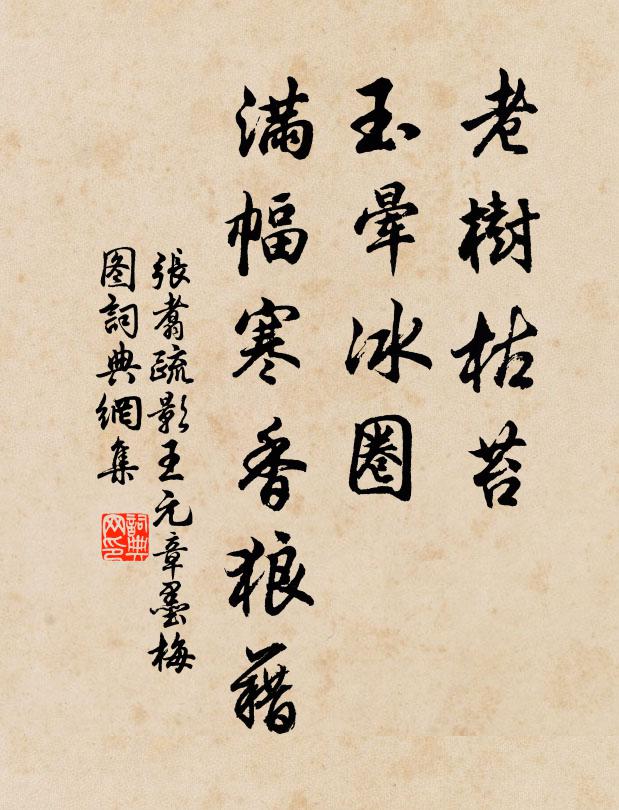 老樹枯苔
玉暈冰圈
滿幅寒香狼藉
張翥疏影王元章墨梅
圖詞典網集
詞典网印